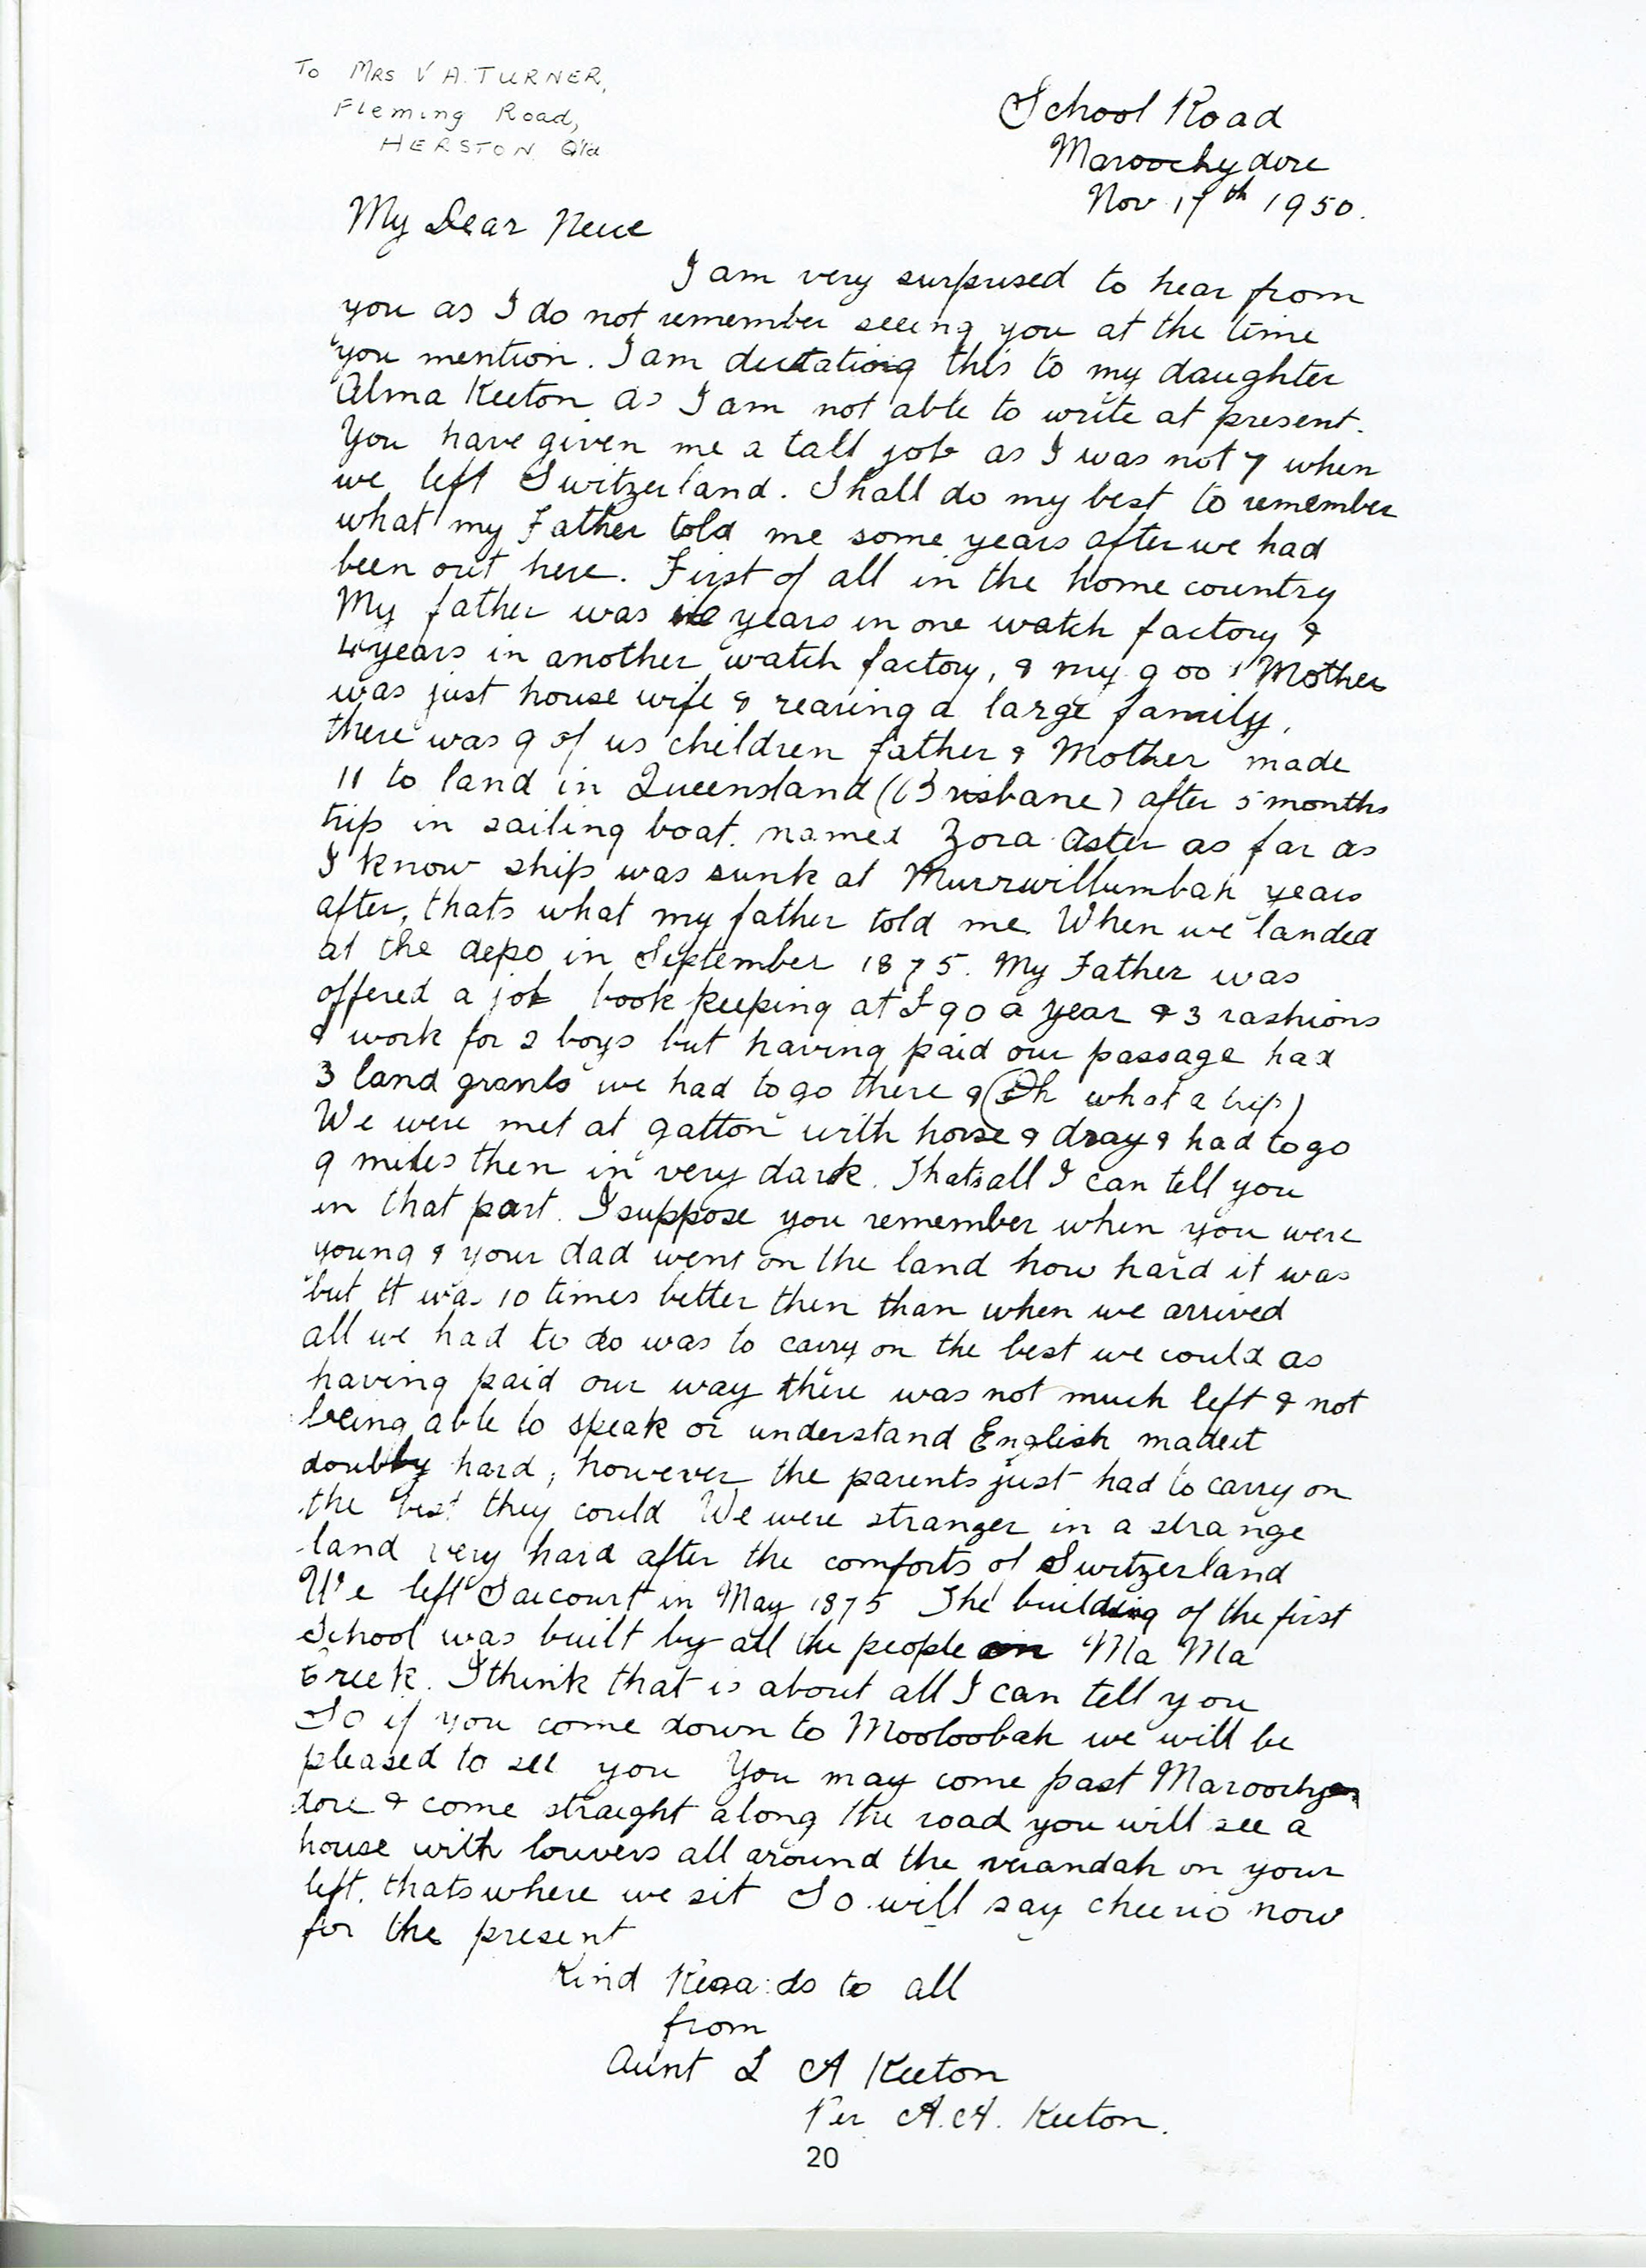 To MRS V A. TURNER,
Fleming Road,
HERSTON Qld
School Road
Maroochydore
Nov 17th 1950.
My Dear Neice
I am very surprised to hear from
you as I do not remember seeing you at the time
you mention. I am dictating this to my daughter
Alma Keeton as I am not able to write at present.
You have given me a tall job as I was not 7 when
we left Switzerland. Shall do my best to remember
what my Father told me some years after we had
been out here. First of all in the home country
My father was years in one watch factory &
4 years in another watch factory, & my good Mother
was just house wife & rearing a large family,
there was 9 of us children father & Mother made
11 to land in Queensland (Brisbane) after 5 months
trip in sailing boat. named Zora Aster as far as
I know ship was sunk at Murrwillumbah years
after, thats what my father told me. When we landed
at the depo in September 1875. My Father was
offered a job book keeping at £90 a year & 3 rashions
& work for 2 boys but having paid our passage had
3 land grants we had to go there & (Oh what a trip)
We were met at gatton with horse & dray & had to go
9 miles then in very dark. Thats all I can tell you
in that part. I suppose you remember when you were
young & your dad went on the land how hard it was
but it was 10 times better then than when we arrived
all we had to do was to carry on the best we could as
having paid our way there was not much left & not
being able to speak or understand English made it
doubly hard, however the parents just had to carry on
the best they could We were stranger in a strange
land very hard after the comforts of Switzerland
We left Saicourt in May 1875 The building of the first
School was built by all the people in Ma Ma
Creek. I think that is about all I can tell you
So if you come down to Mooloobah we will be
pleased to see you You may come past Maroochy
dore & come straight along the road you will see a
house with louvers all around the verandah on your
left, thats where we sit So will say cheerio now
for the present
Kind Regards to all
from
Aunt L A Keeton
Per A.A. Keeton.
20